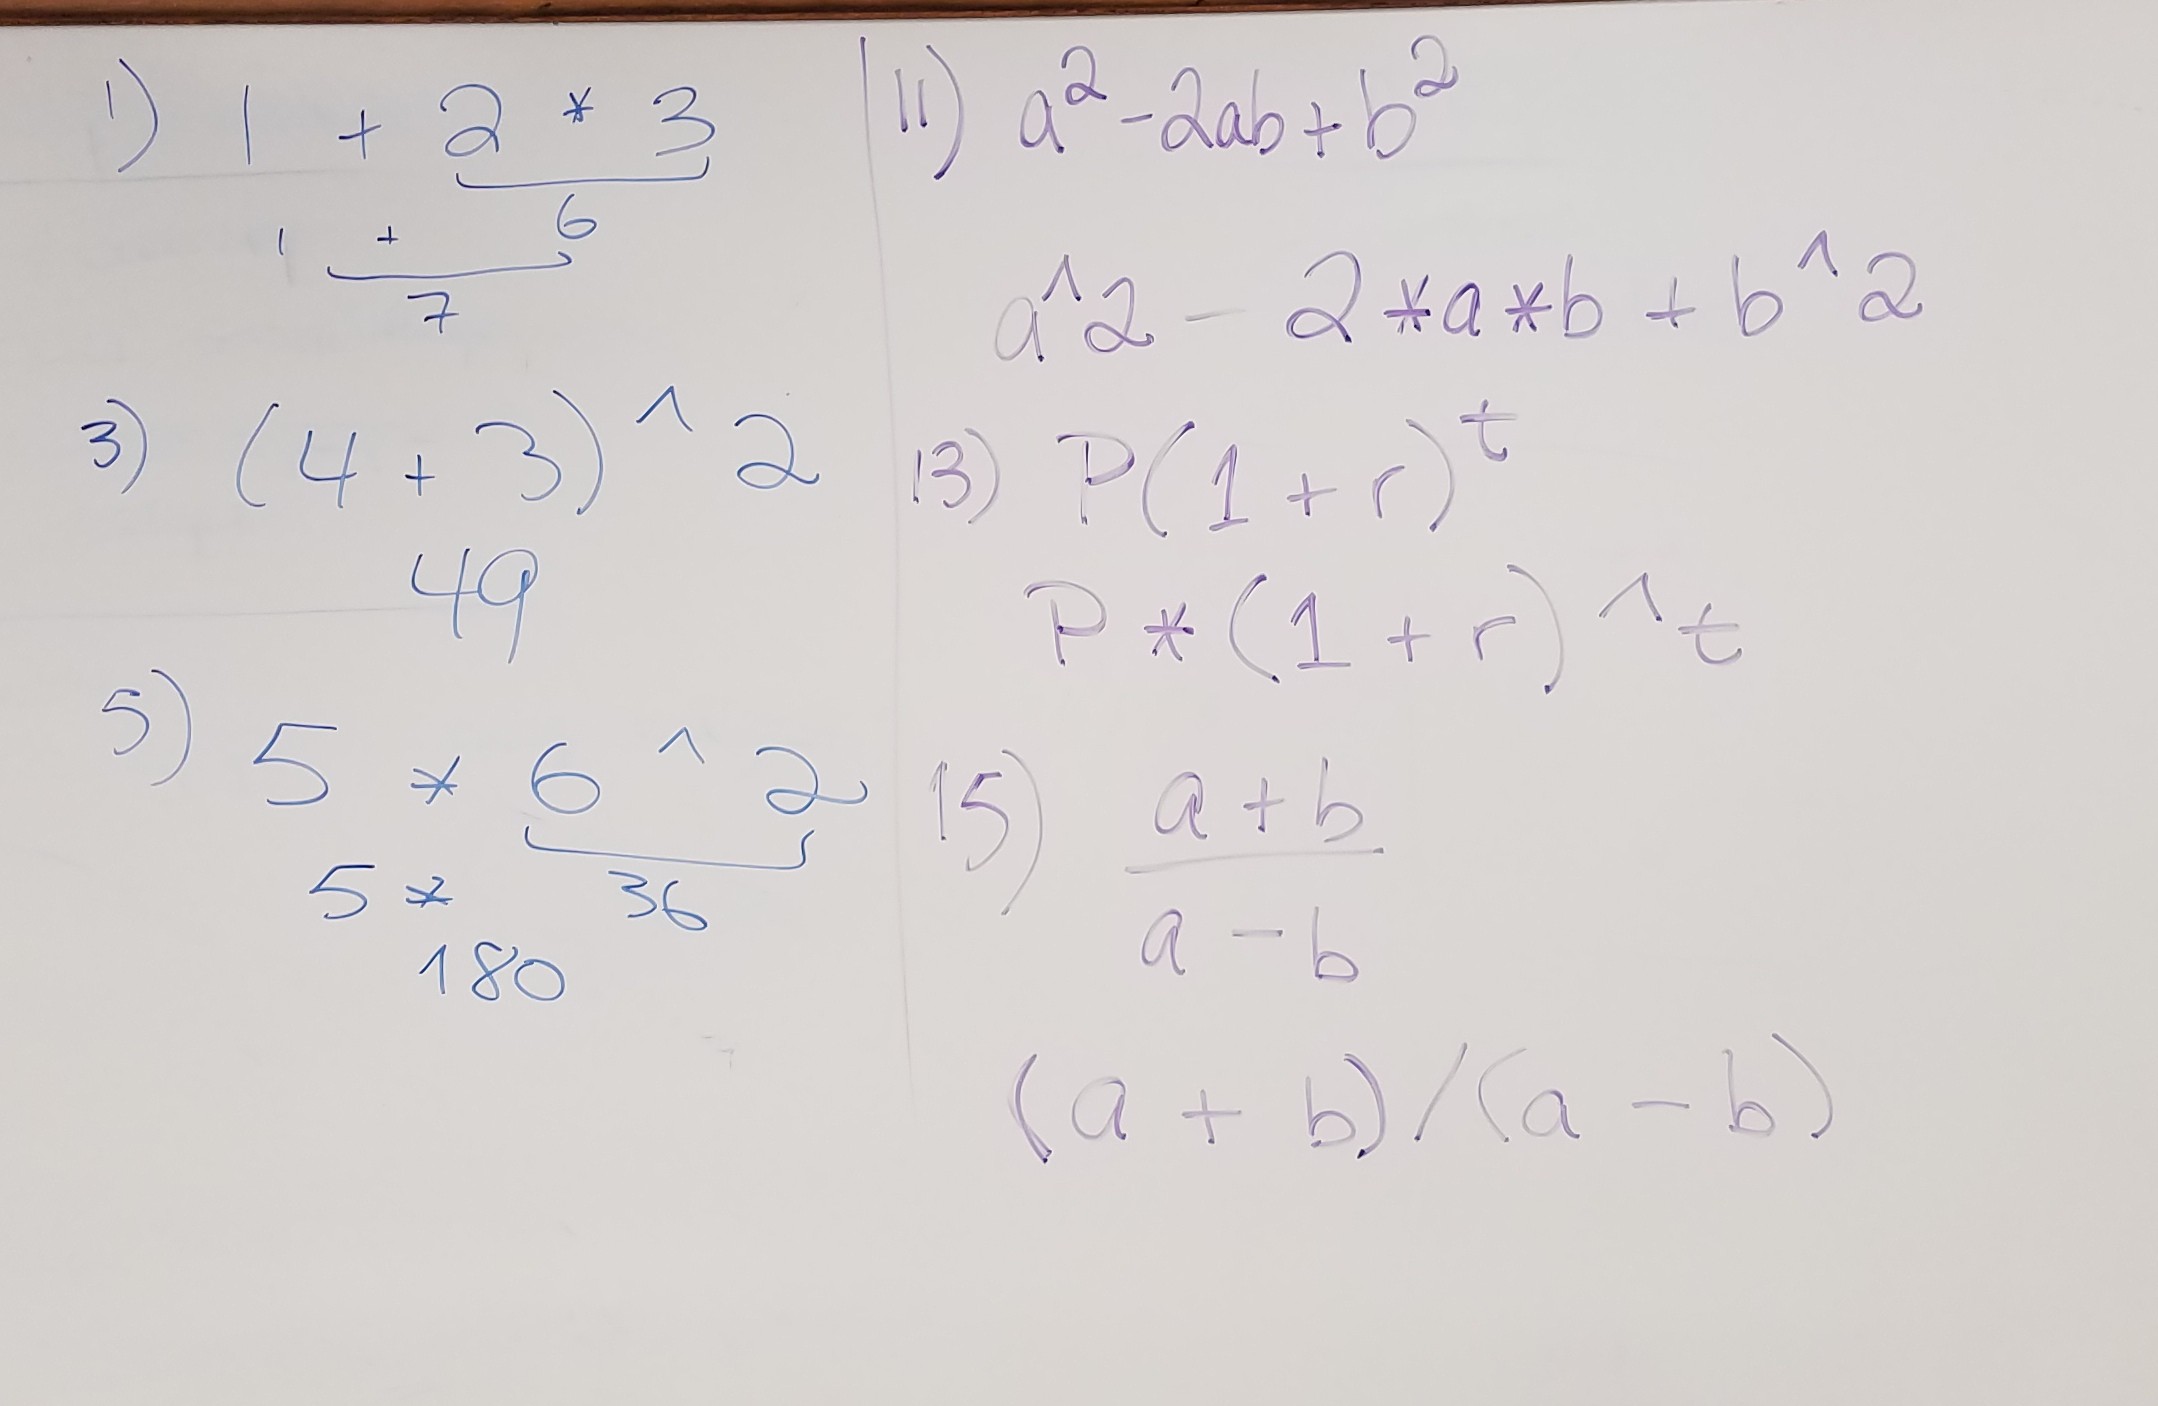 1) 1 + 2 * 3
6
1 +
7
3) (4 + 3) ^ 2
49
5) 5 * 6 ^ 2
5 * 36
180
11) a² - 2ab + b²
a^2 - 2*a*b + b^2
13) P(1 + r)ᵗ
P * (1 + r) ^ t
15) a + b
a - b
(a + b) / (a - b)